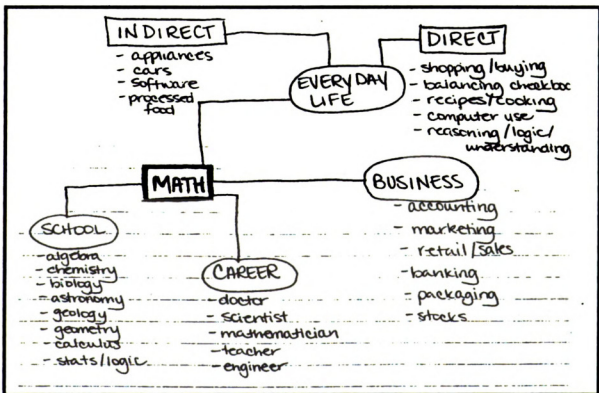 INDIRECT
- appliances
- cars
- software
- processed
food
EVERYDAY
LIFE
DIRECT
- shopping/buying
- balancing checkbox
- recipes/cooking
- computer use
- reasoning/logic/
understanding
MATH
BUSINESS
- accounting
- marketing
- retail/sales
- banking
- packaging
- stocks
SCHOOL
- algebra
- chemistry
- biology
- astronomy
- geology
- geometry
- calculus
- stats/logic
CAREER
- doctor
- scientist
- mathematician
- teacher
- engineer